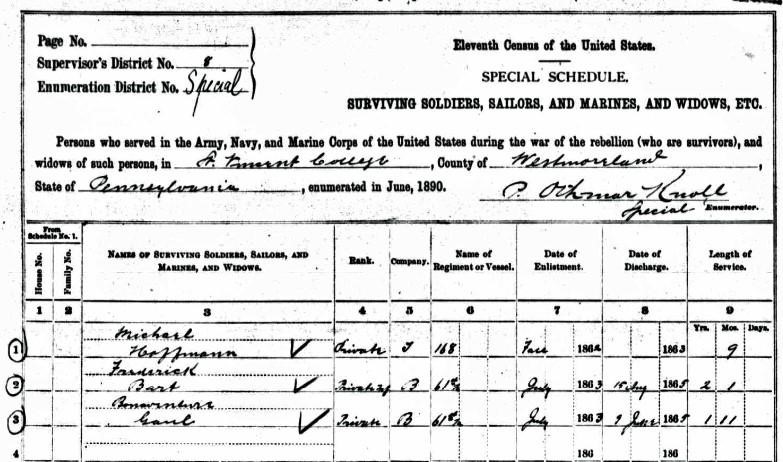 Page No.
Supervisor's District No. 8
Enumeration District No. Special
Eleventh Census of the United States.
SPECIAL SCHEDULE.
SURVIVING SOLDIERS, SAILORS, AND MARINES, AND WIDOWS, ETC.
Persons who served in the Army, Navy, and Marine Corps of the United States during the war of the rebellion (who are survivors), and
widows of such persons, in St. Vincent College, County of Westmoreland,
State of Pennsylvania, enumerated in June, 1890. P. Othmar Knoll
Special Enumerator.
From Schedule No. 1.
House No.
Family No.
NAMES OF SURVIVING SOLDIERS, SAILORS, AND MARINES, AND WIDOWS.
Rank.
Company.
Name of Regiment or Vessel.
Date of Enlistment.
Date of Discharge.
Length of Service.
1 2 3 4 5 6 7 8 9
Yrs. Mos. Days.
Michael
1 Hoffmann Private 168 1862 1863 9
Frederick
2 Bart Private B 61st July 1863 15 Aug 1865 2 1
Bonaventure
3 Gaul Private B 61st July 1863 1865 1 11
4 186 186